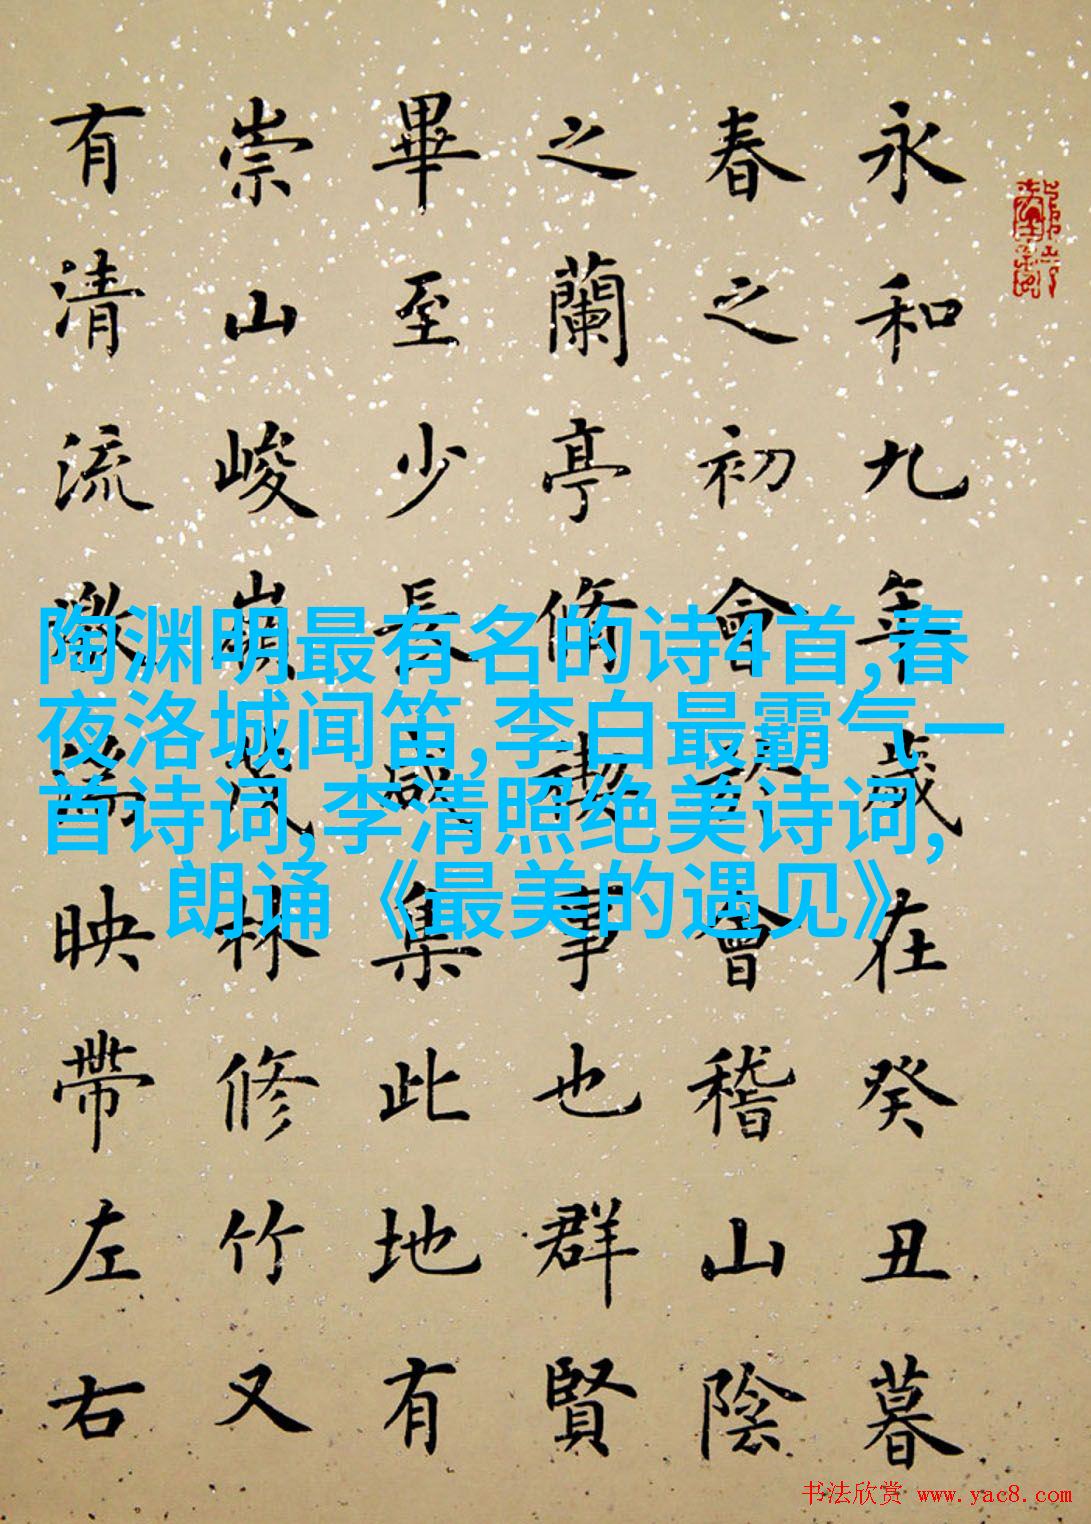 永和九年歲在癸丑暮
春之初會於會稽山陰
之蘭亭脩禊事也群賢
畢至少長咸集此地有
崇山峻嶺茂林修竹又
有清流激湍映帶左右
陶渊明最有名的诗4首,春
夜洛城闻笛,李白最霸气一
首诗词,李清照绝美诗词,
朗诵《最美的遇见》
书法欣赏 www.yac8.com